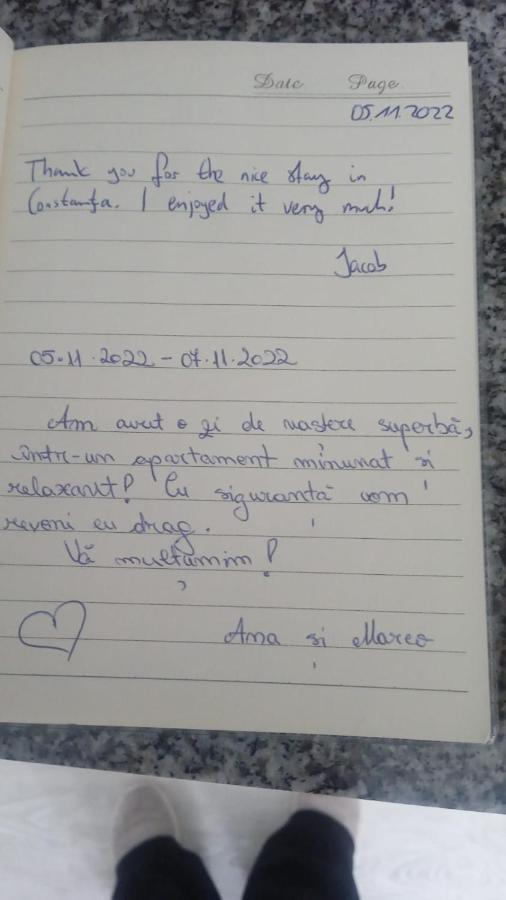 Date Page
05.11.2022
Thank you for the nice stay in
Constanța. I enjoyed it very much!
Jacob
05.11.2022 - 07.11.2022
Am avut o zi de nastere superbă,
într-un apartament minunat și
relaxant! Cu siguranță vom
reveni cu drag.
Vă mulțumim!
Ana și Marco